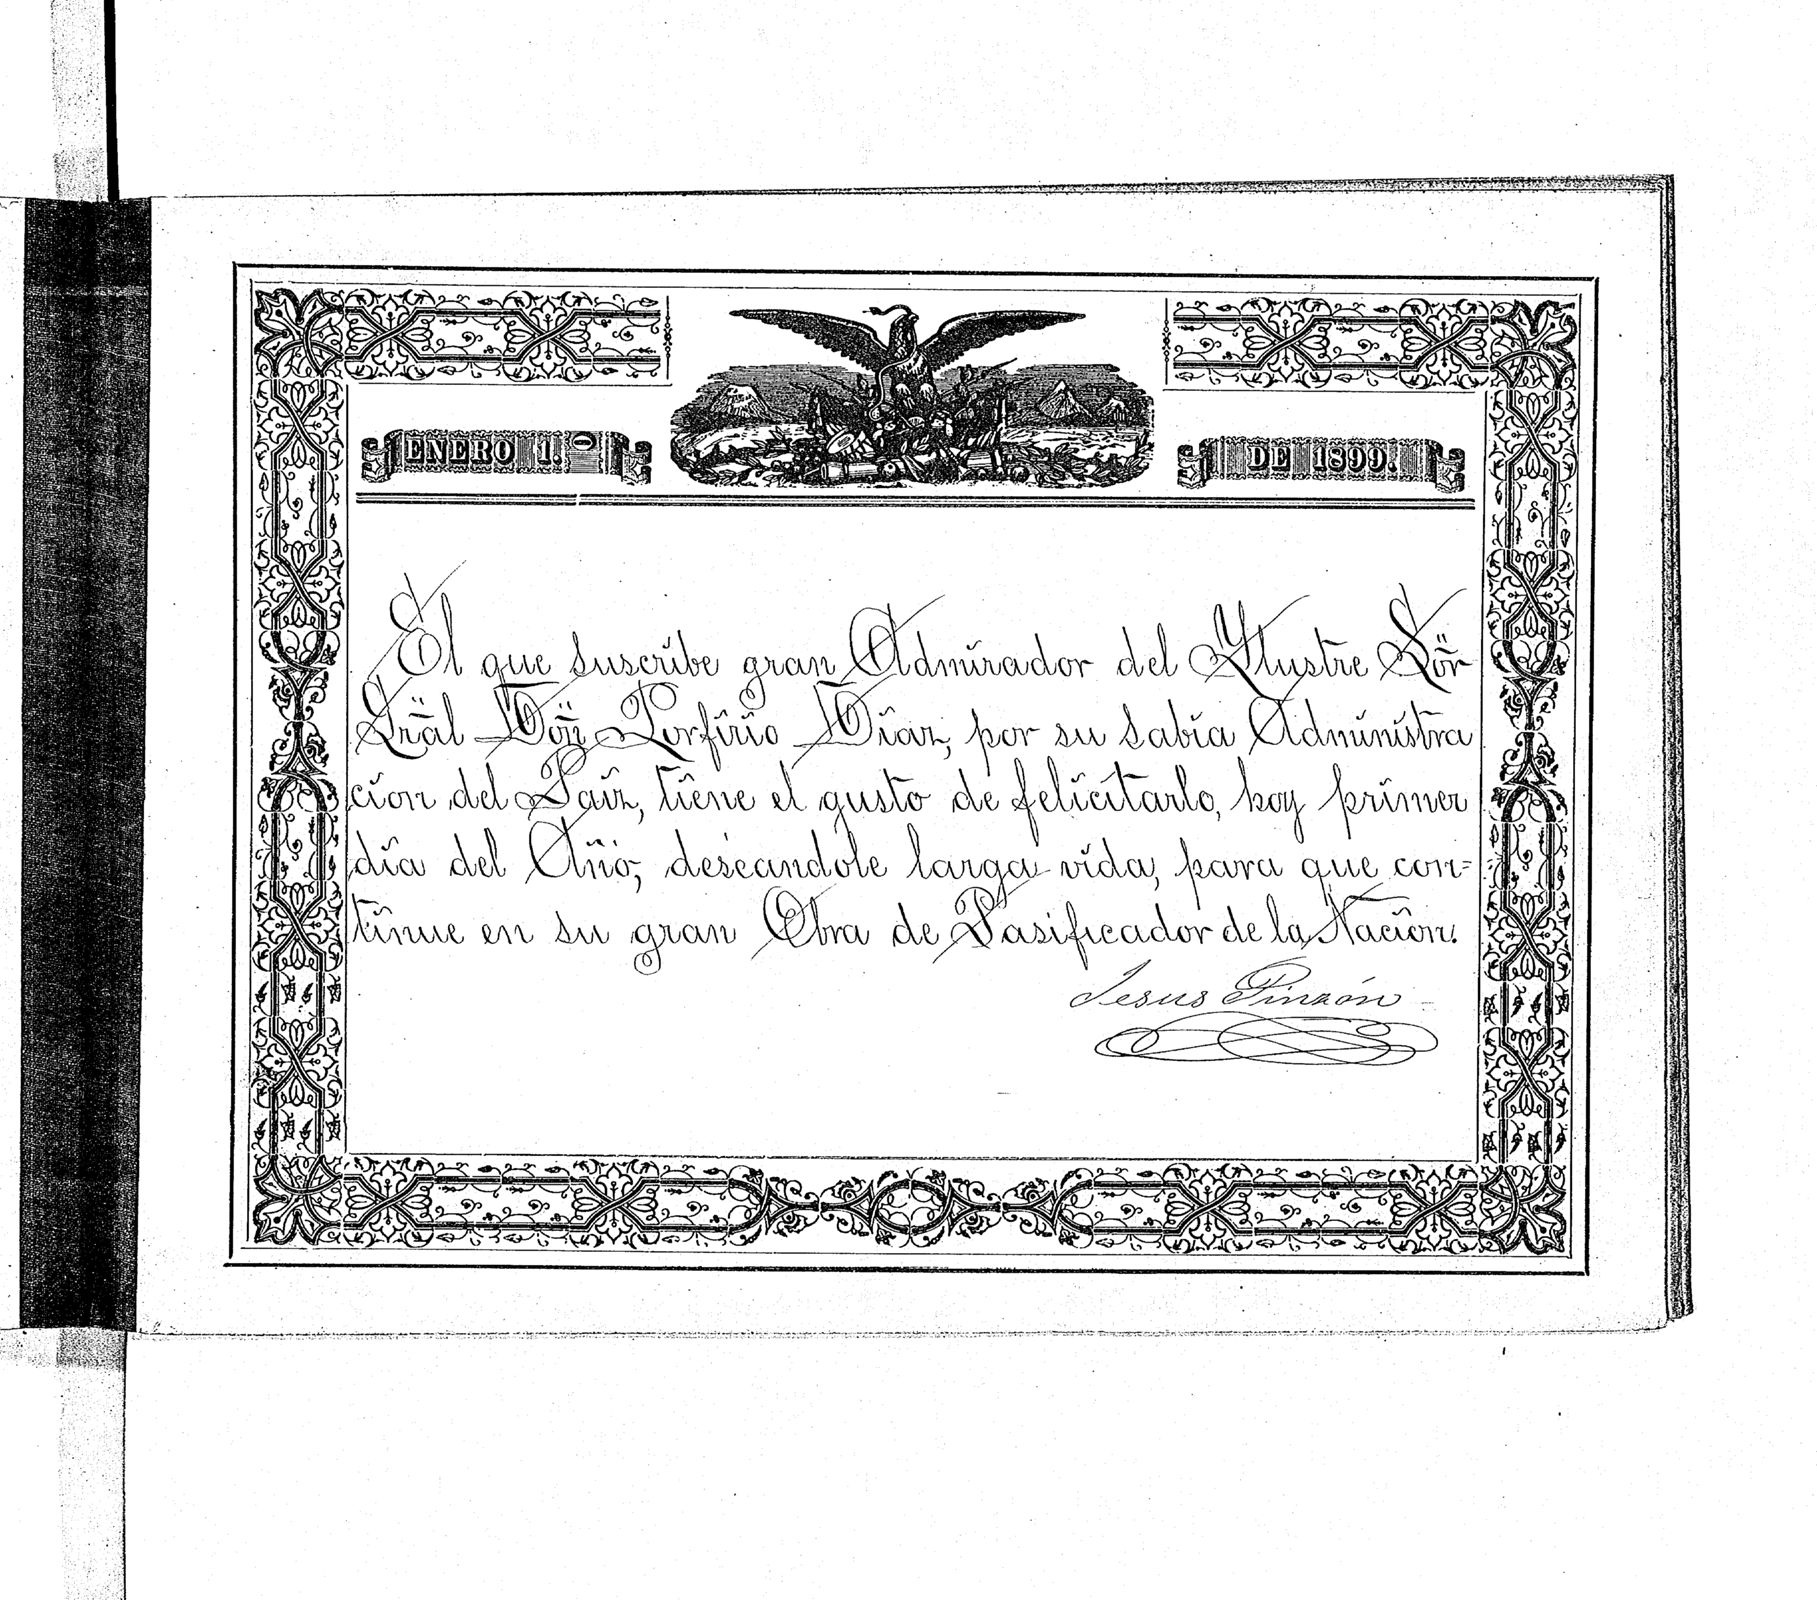 ENERO 1.º DE 1899.
El que suscribe gran Admirador del Ylustre Sör
Gräl Dön Porfirio Díaz, por su sabia Administra
cion del Paíz, tiene el gusto de felicitarlo, hoy primer
día del Año, deseandole larga vida, para que con=
tinue en su gran Obra de Pasificador de la Nación.
Jesus Pinzón